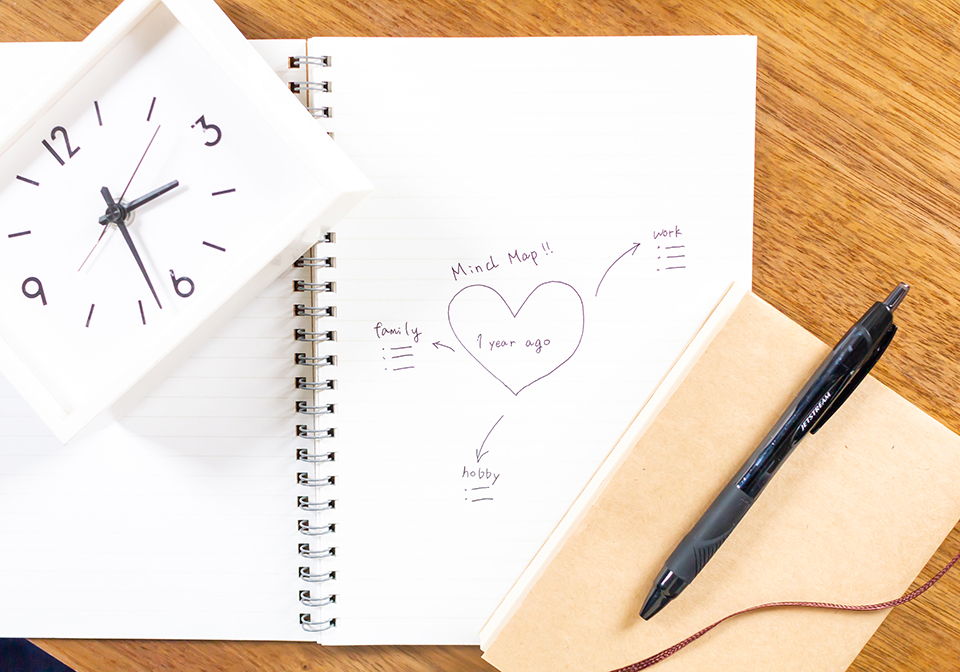 12
3
9
6
Mind Map!!
work
family
1 year ago
hobby
JETSTREAM